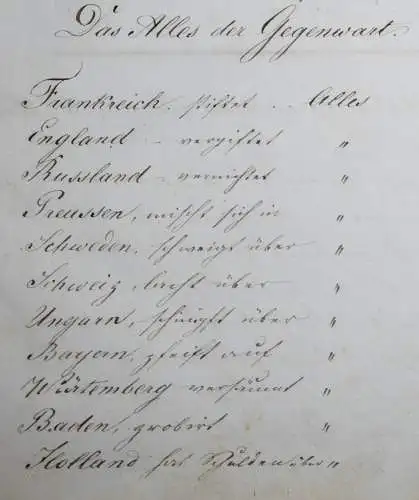 Das Alles der Gegenwart.
Frankreich. stiftet .. Alles
England - vergiftet "
Russland - vernichtet "
Preussen, mischt sich in "
Schweden, schweigt über "
Schweiz lacht über "
Ungarn, schimpft über "
Bayern, pfeift auf "
Würtemberg versäumt "
Baden, probirt "
Holland hat Schulden über "